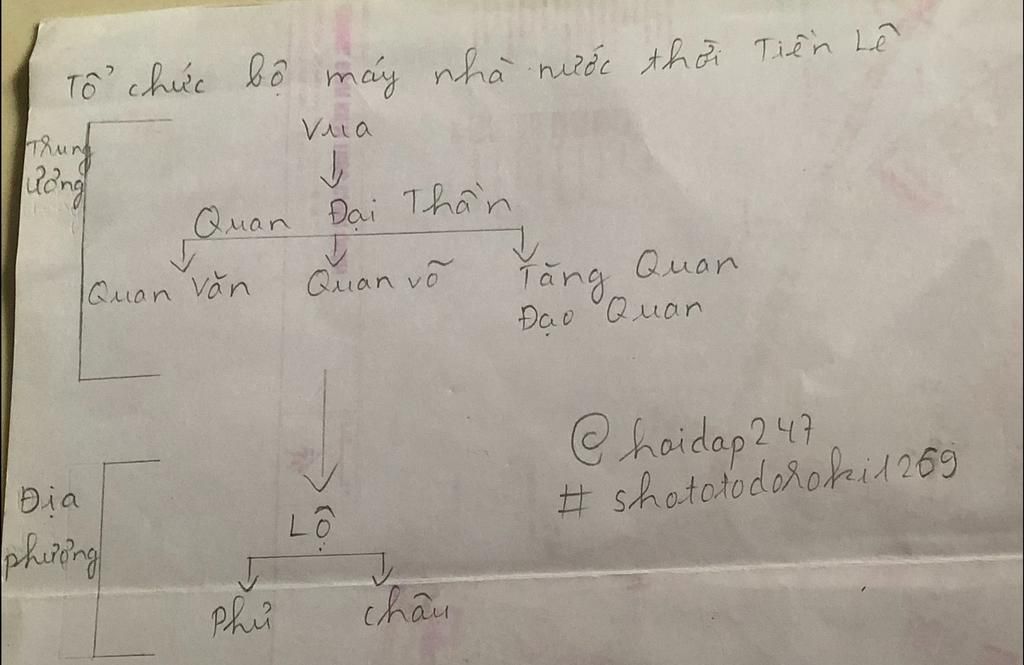 Tổ chức bộ máy nhà nước thời Tiền Lê
Vua
Trung ương
Quan Đại Thần
Quan Văn Quan võ Tăng Quan
Đạo Quan
@hoidap247
#shototodoroki1269
Địa phương
Lộ
Phủ Châu